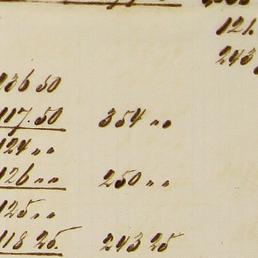 121.
243
236 50
117.50 354 "
124 "
126 " 250 "
125 "
118 25. 243 25